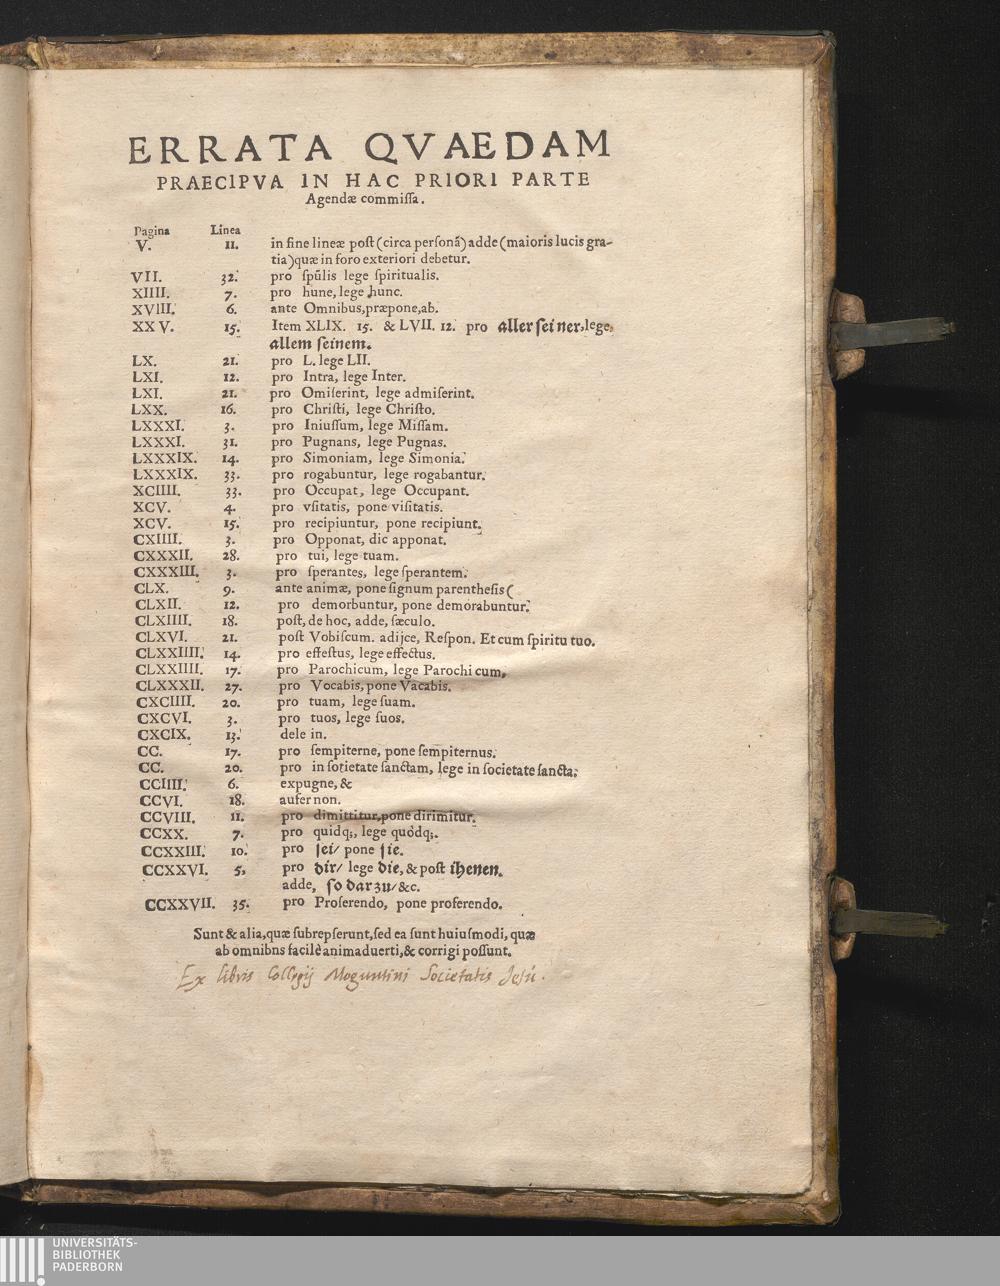 ERRATA QVAEDAM
PRAECIPVA IN HAC PRIORI PARTE
Agendæ commiſſa.
Pagina Linea
V. 11. in fine lineæ poſt (circa perſonā) adde (maioris lucis gra-
tia) quæ in foro exteriori debetur.
VII. 32. pro ſpūlis lege ſpiritualis.
XIIII. 7. pro hune, lege hunc.
XVIII. 6. ante Omnibus, præpone, ab.
XXV. 15. Item XLIX. 15. & LVII. 12. pro aller ſeiner, lege,
allem ſeinem.
LX. 21. pro L. lege LII.
LXI. 12. pro Intra, lege Inter.
LXI. 21. pro Omiſerint, lege admiſerint.
LXX. 16. pro Chriſti, lege Chriſto.
LXXXI. 3. pro Iniuſſum, lege Miſſam.
LXXXI. 31. pro Pugnans, lege Pugnas.
LXXXIX. 14. pro Simoniam, lege Simonia.
LXXXIX. 33. pro rogabuntur, lege rogabantur.
XCIIII. 33. pro Occupat, lege Occupant.
XCV. 4. pro vſitatis, pone viſitatis.
XCV. 15. pro recipiuntur, pone recipiunt.
CXIIII. 3. pro Opponat, dic apponat.
CXXXII. 28. pro tui, lege tuam.
CXXXIII. 3. pro ſperantes, lege ſperantem.
CLX. 9. ante animæ, pone ſignum parentheſis (
CLXII. 12. pro demorbuntur, pone demorabuntur.
CLXIIII. 18. poſt, de hoc, adde, ſæculo.
CLXVI. 21. poſt Vobiſcum. adijce, Reſpon. Et cum ſpiritu tuo.
CLXXIIII. 14. pro effeſtus, lege effectus.
CLXXIIII. 17. pro Parochicum, lege Parochi cum,
CLXXXII. 27. pro Vocabis, pone Vacabis.
CXCIIII. 20. pro tuam, lege ſuam.
CXCVI. 3. pro tuos, lege ſuos.
CXCIX. 13. dele in.
CC. 17. pro ſempiterne, pone ſempiternus.
CC. 20. pro in ſotietate ſanctam, lege in ſocietate ſancta.
CCIIII. 6. expugne, &
CCVI. 18. aufer non.
CCVIII. 11. pro dimittitur, pone dirimitur.
CCXX. 7. pro quidq;, lege quòdq;.
CCXXIII. 10. pro ſei/ pone ſie.
CCXXVI. 5. pro dir/ lege die, & poſt ihenen.
adde, ſo darzu/ &c.
CCXXVII. 35. pro Proferendo, pone proferendo.
Sunt & alia, quæ ſubrepſerunt, ſed ea ſunt huiuſmodi, quæ
ab omnibns facilè animaduerti, & corrigi poſſunt.
Ex libris Collegij Moguntini Societatis Jesu.
UNIVERSITÄTS-
BIBLIOTHEK
PADERBORN